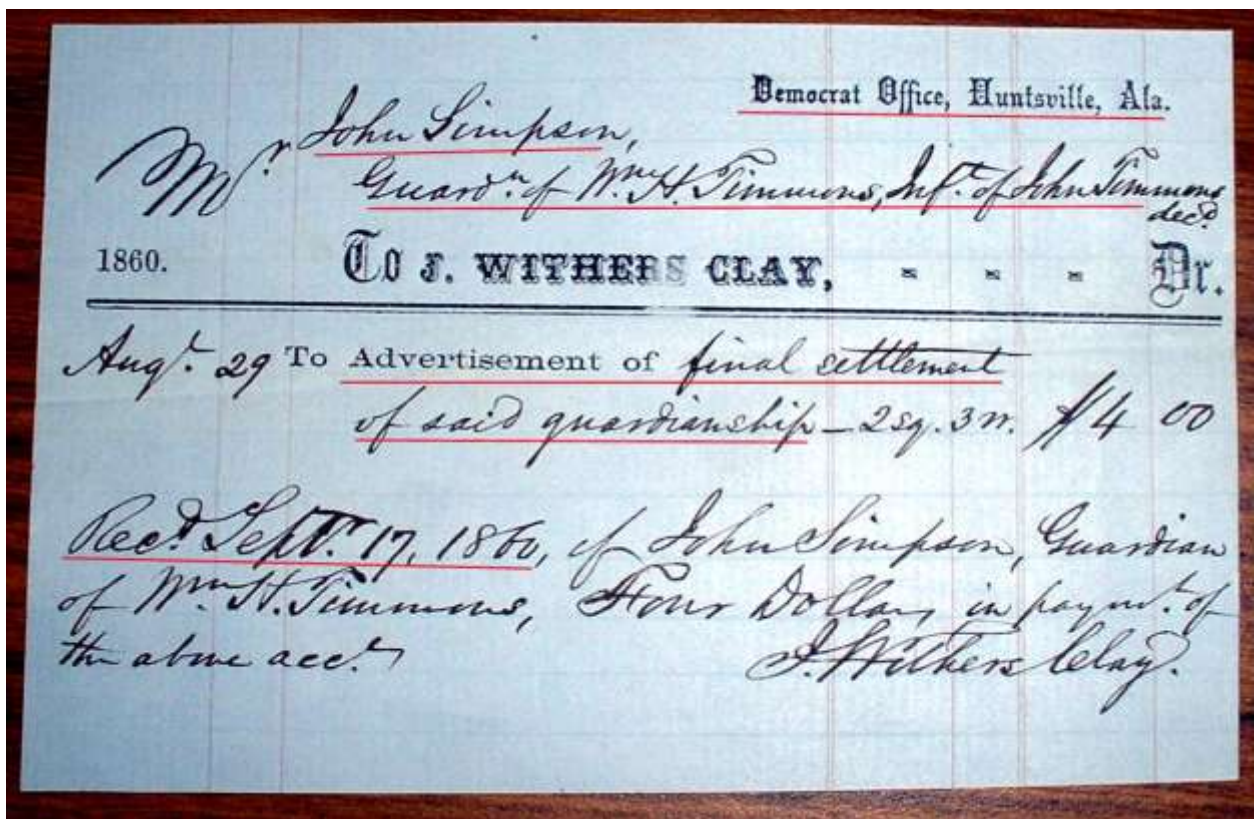 Democrat Office, Huntsville, Ala.
Mr John Simpson,
Guardn of Wm H. Timmons, Inft of John Timmons
decd
1860. To J. WITHERS CLAY, - - - Dr.
Augt 29 To Advertisement of final settlement
of said guardianship - 2 sq. 3 w. $4 00
Recd Septr 17, 1860, of John Simpson, Guardian
of Wm H. Timmons, Four Dollars, in paymt of
the above acct
J. Withers Clay.